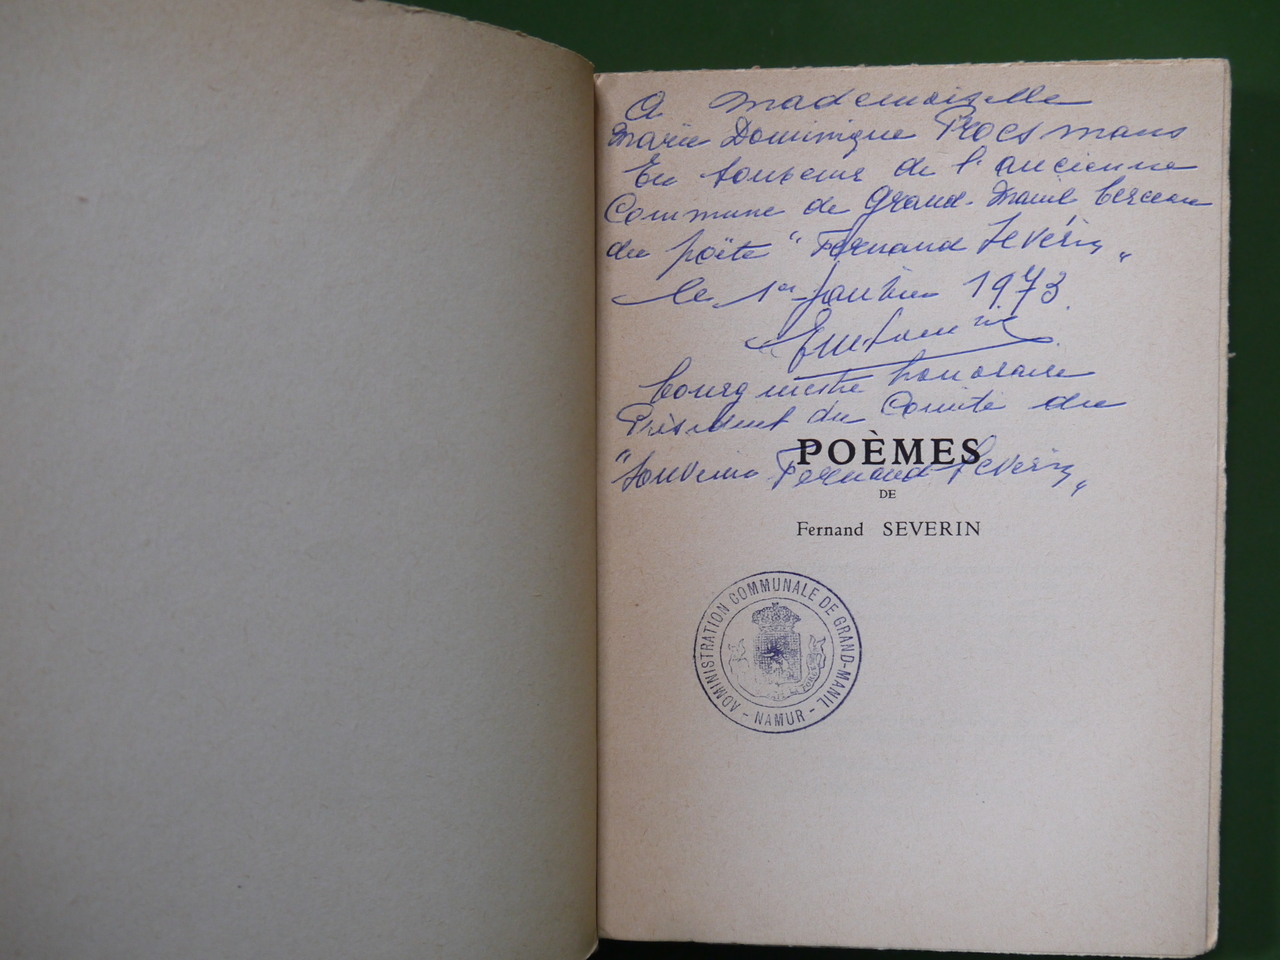 A Mademoiselle
Marie Dominique Procsmans
En souvenir de l'ancienne
Commune de Grand-Manil berceau
du poëte "Fernand Sevérin"
le 1er Janvier 1973
bourgmestre honoraire
Président du Comité du
"Souvenir Fernand Severin"
POÈMES
DE
Fernand SEVERIN
ADMINISTRATION COMMUNALE DE GRAND-MANIL
- NAMUR -
FORCE